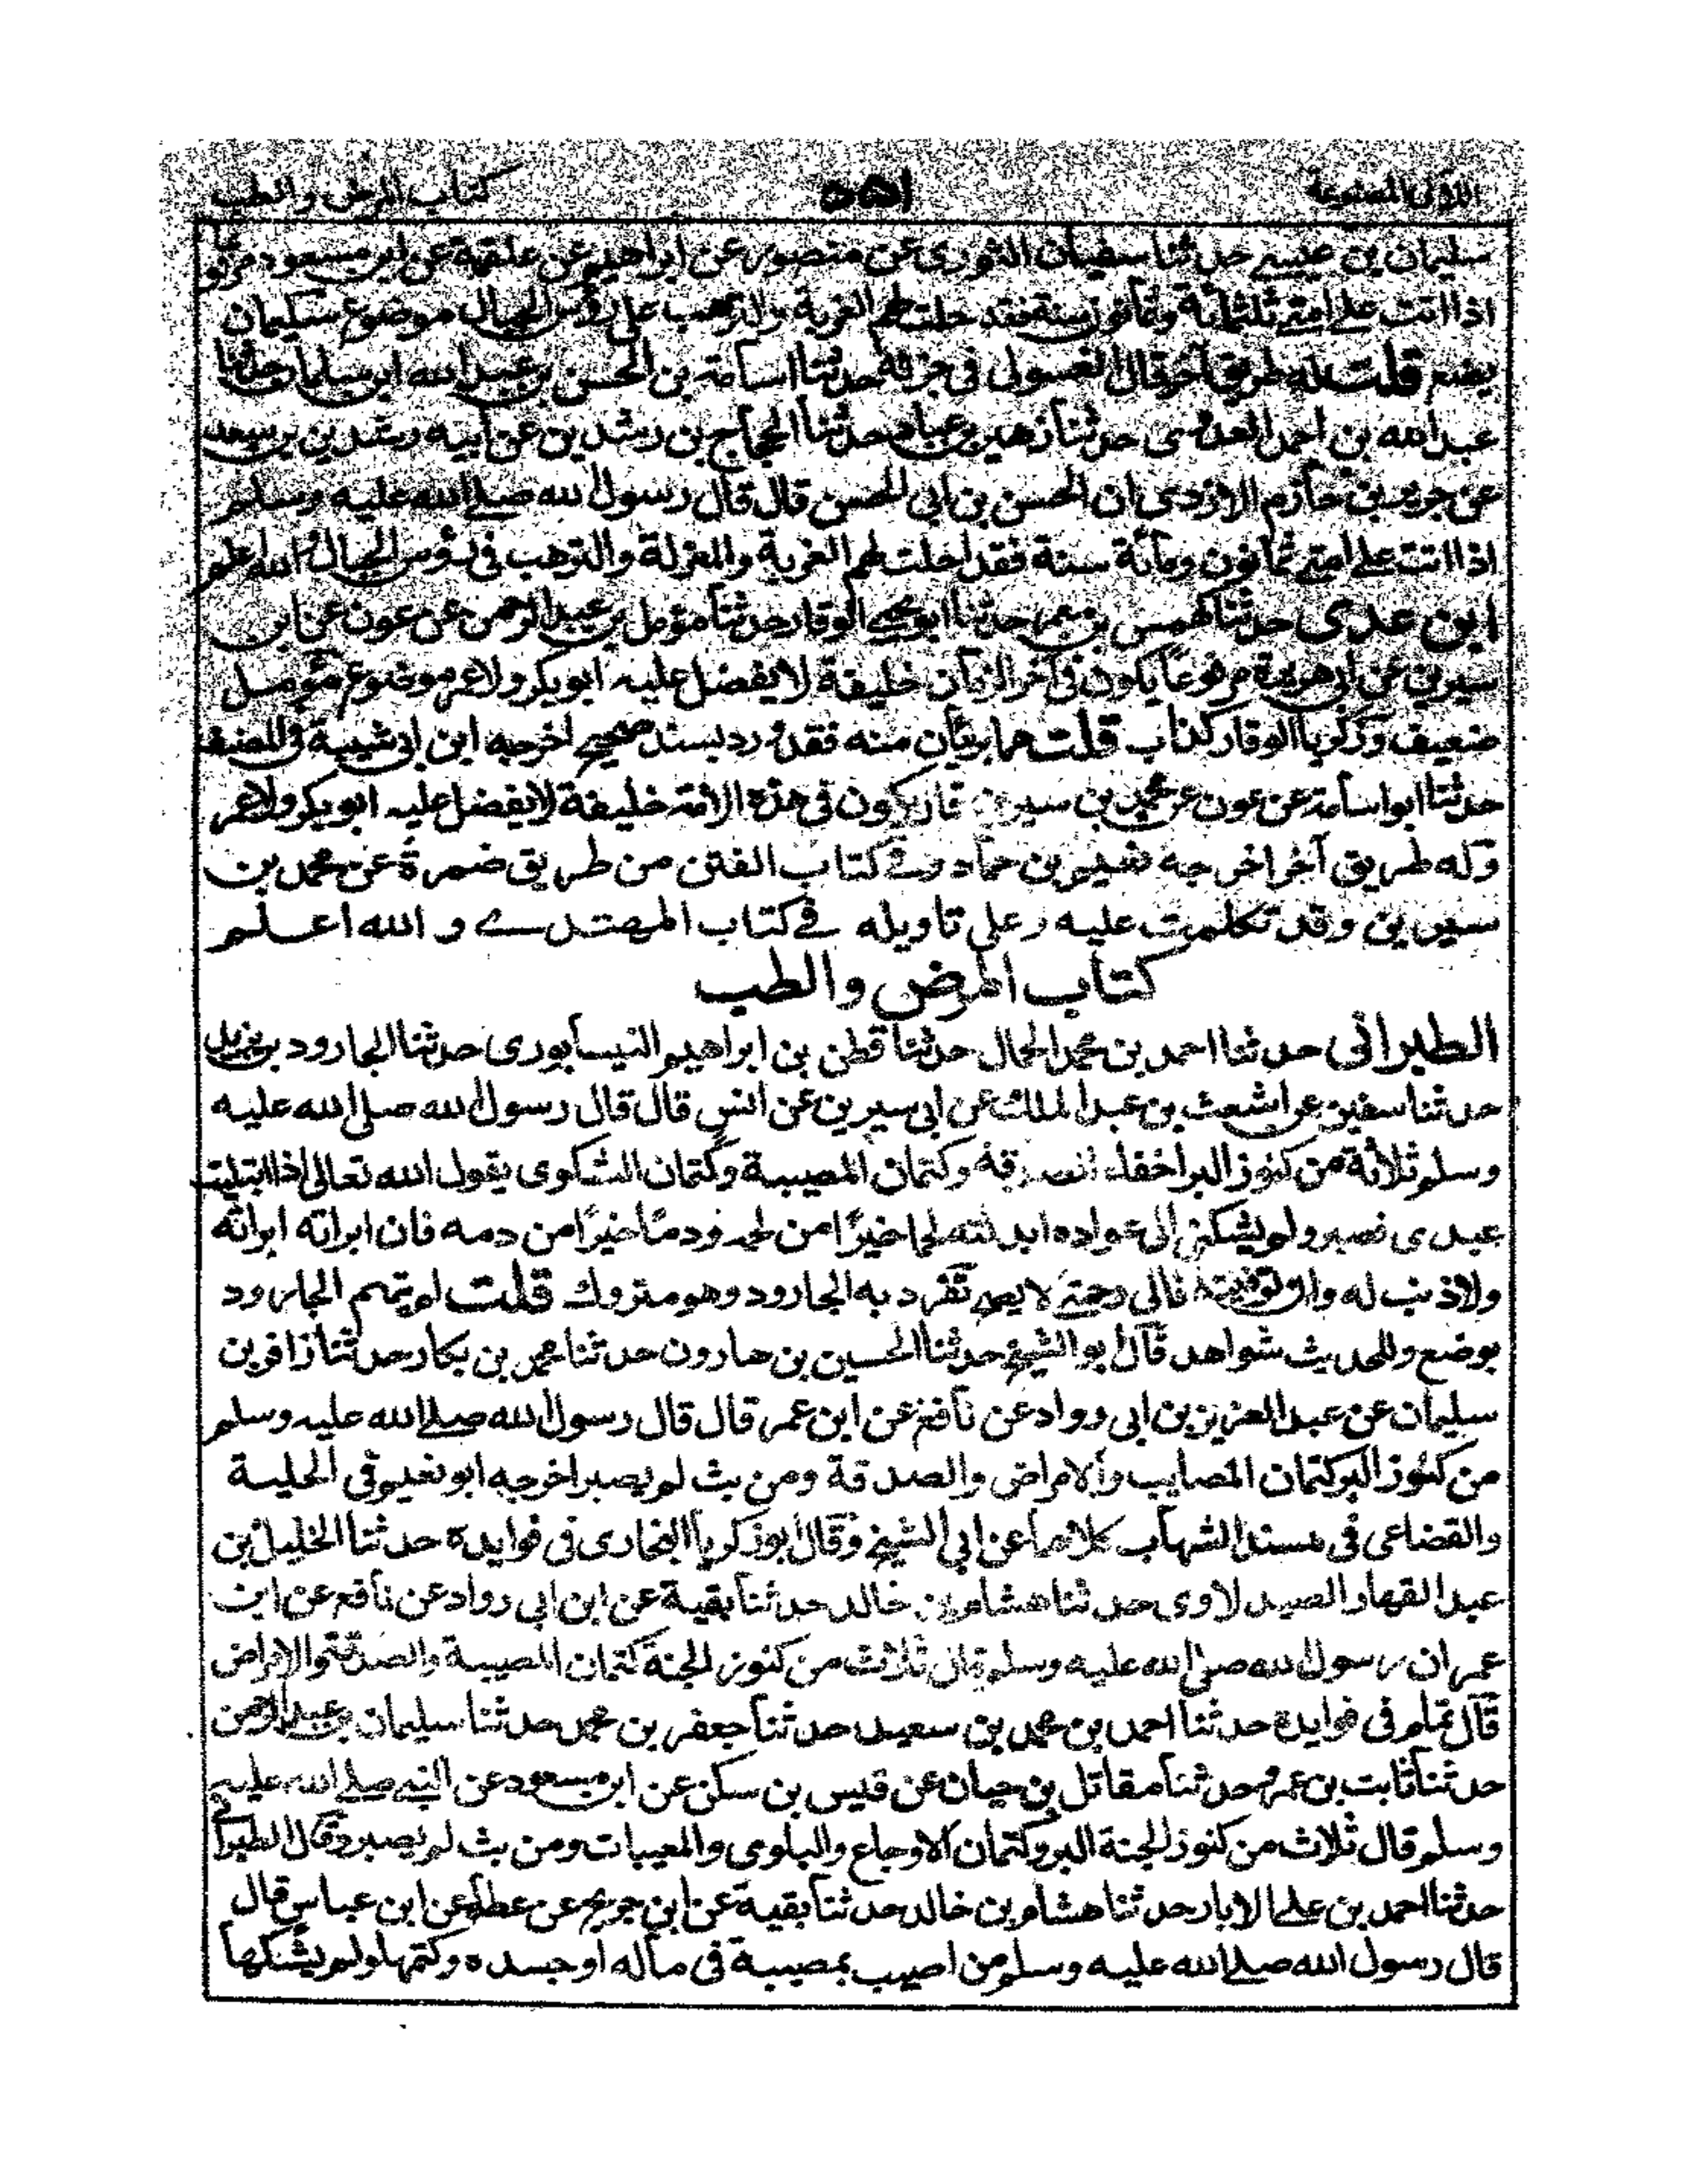 اللآلئ المصنوعة ٥٥١ كتاب المرض والطب
سليمان بن عيسے حدثنا سفيان الثوري عن منصور عن ابراهيم عن علقمة عن ابن مسعود مرفوعا
اذا اتت علے امتے ثلثمائة وثمانون سنة فقد حلت لهم الغربة والترهب على رؤس الجبال موضوع سليمان
يضع قلت له طريق آخر قال الغسولى فى جزئه حدثنا اسامة بن الحسن بن عبد الله ابن سلمان حدثنا
عبد الله بن احمد حدثنا زهير بن عباد حدثنا الحجاج بن رشدين عن ابيه رشدين بن سعد
عن جرير بن حازم الازدى ان الحسن بن ابى الحسن قال قال رسول الله صلے الله عليه وسلم
اذا اتت علے امتے ثمانون ومائة سنة فقد احلت لهم الغربة والعزلة والترهب فى رؤس الجبال والله اعلم
ابن عدى حدثنا كهمس بن معمر حدثنا ابو يحيے الوقار حدثنا مؤمل بن عبد الرحمن عن عون عن ابن
سيرين عن ابى هريرة مرفوعا يكون فى آخر الزمان خليفة لا يفضل عليه ابو بكر ولا عمر موضوع مؤمل
ضعيف وزكريا الوقار كذاب قلت هما بريئان منه فقد ورد بسند صحيح اخرجه ابن ابى شيبة فى المصنف
حدثنا ابو اسامة عن عون عن محمد بن سيرين قال يكون فى هذه الامة خليفة لا يفضل عليه ابو بكر ولا عمر
وله طريق آخر اخرجه نعيم بن حماد فے كتاب الفتن من طريق ضمرة عن محمد بن
سيرين وقد تكلمت عليه وعلى تاويله فے كتاب المهتدے و الله اعلم
كتاب المرض والطب
الطبرانى حدثنا احمد بن محمد الحمال حدثنا قطن بن ابراهيم النيسابورى حدثنا الجارود بن يزيد
حدثنا سفين عن اشعث بن عبد الملك عن ابى سيرين عن انس قال قال رسول الله صلى الله عليه
وسلم ثلاثة من كنوز البر اخفاء الصدقة وكتمان المصيبة وكتمان الشكوى يقول الله تعالى اذا ابتليت
عبدى فصبر ولم يشكنى الى عواده ابدلته لحما خيرًا من لحمه ودمًا خيرًا من دمه فان ابراته ابراته
ولا ذنب له وان توفيته فالى رحمتے لا يصح تفرد به الجارود وهو متروك قلت لم يتهم الجارود
بوضع وللحديث شواهد قال ابو الشيخ حدثنا الحسين بن هارون حدثنا محمد بن بكار حدثنا زافر بن
سليمان عن عبد العزيز بن ابى رواد عن نافع عن ابن عمر قال قال رسول الله صلے الله عليه وسلم
من كنوز البر كتمان المصايب والامراض والصدقة ومن بث لم يصبر اخرجه ابو نعيم فى الحلية
والقضاعى فى مسند الشهاب كلاهما عن ابى الشيخ وقال ابو زكريا البخارى فى فوايده حدثنا الخليل بن
عبد القهار الصيدلاوى حدثنا هشام بن خالد حدثنا بقية عن ابن ابى رواد عن نافع عن ابن
عمر ان رسول الله صلى الله عليه وسلم قال ثلاث من كنوز الجنة كتمان المصيبة والصدقة والامراض
قال تمام فى فوايده حدثنا احمد بن محمد بن سعيد حدثنا جعفر بن محمد حدثنا سليمان بن عبد الرحمن
حدثنا ثابت بن عمرو حدثنا مقاتل بن حيان عن قيس بن سكن عن ابن مسعود عن النبے صلے الله عليه
وسلم قال ثلاث من كنوز الجنة البر وكتمان الاوجاع والبلوى والمعيبات ومن بث لم يصبر وقال الطبرانے
حدثنا احمد بن علے الابار حدثنا هشام بن خالد حدثنا بقية عن ابن جريج عن عطاء عن ابن عباس قال
قال رسول الله صلے الله عليه وسلم من اصيب بمصيبة فى ماله او جسده وكتمها ولم يشكها